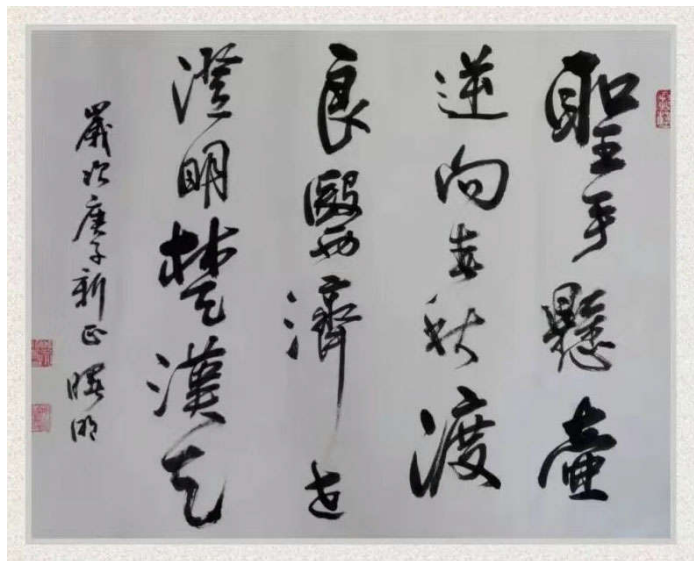 聖手懸壺
逆向春秋渡
良醫濟世
澄明楚漢天
歲次庚子新正 曙明